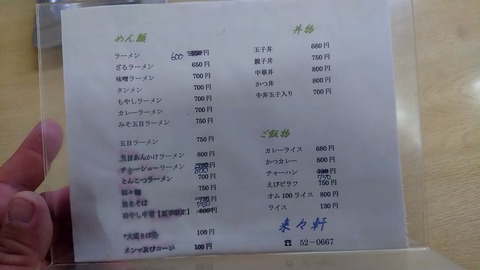 めん類
ラーメン 600円
ざるラーメン 650円
味噌ラーメン 700円
タンメン 700円
もやしラーメン 700円
カレーラーメン 700円
みそ五目ラーメン 750円
五目ラーメン 750円
五目あんかけラーメン 800円
チャーシューラーメン 800円
とんこつラーメン 700円
750円
焼きそば
冷やし中華【夏季限定】
*大盛りは 100円
メンマ及びコーン 100円
丼物
玉子丼 680円
親子丼 750円
中華丼 800円
かつ丼 800円
牛丼玉子入り 700円
ご飯物
カレーライス 680円
かつカレー 800円
チャーハン
えびピラフ 750円
オム100ライス 800円
ライス 130円
来々軒
☎ 52-0667